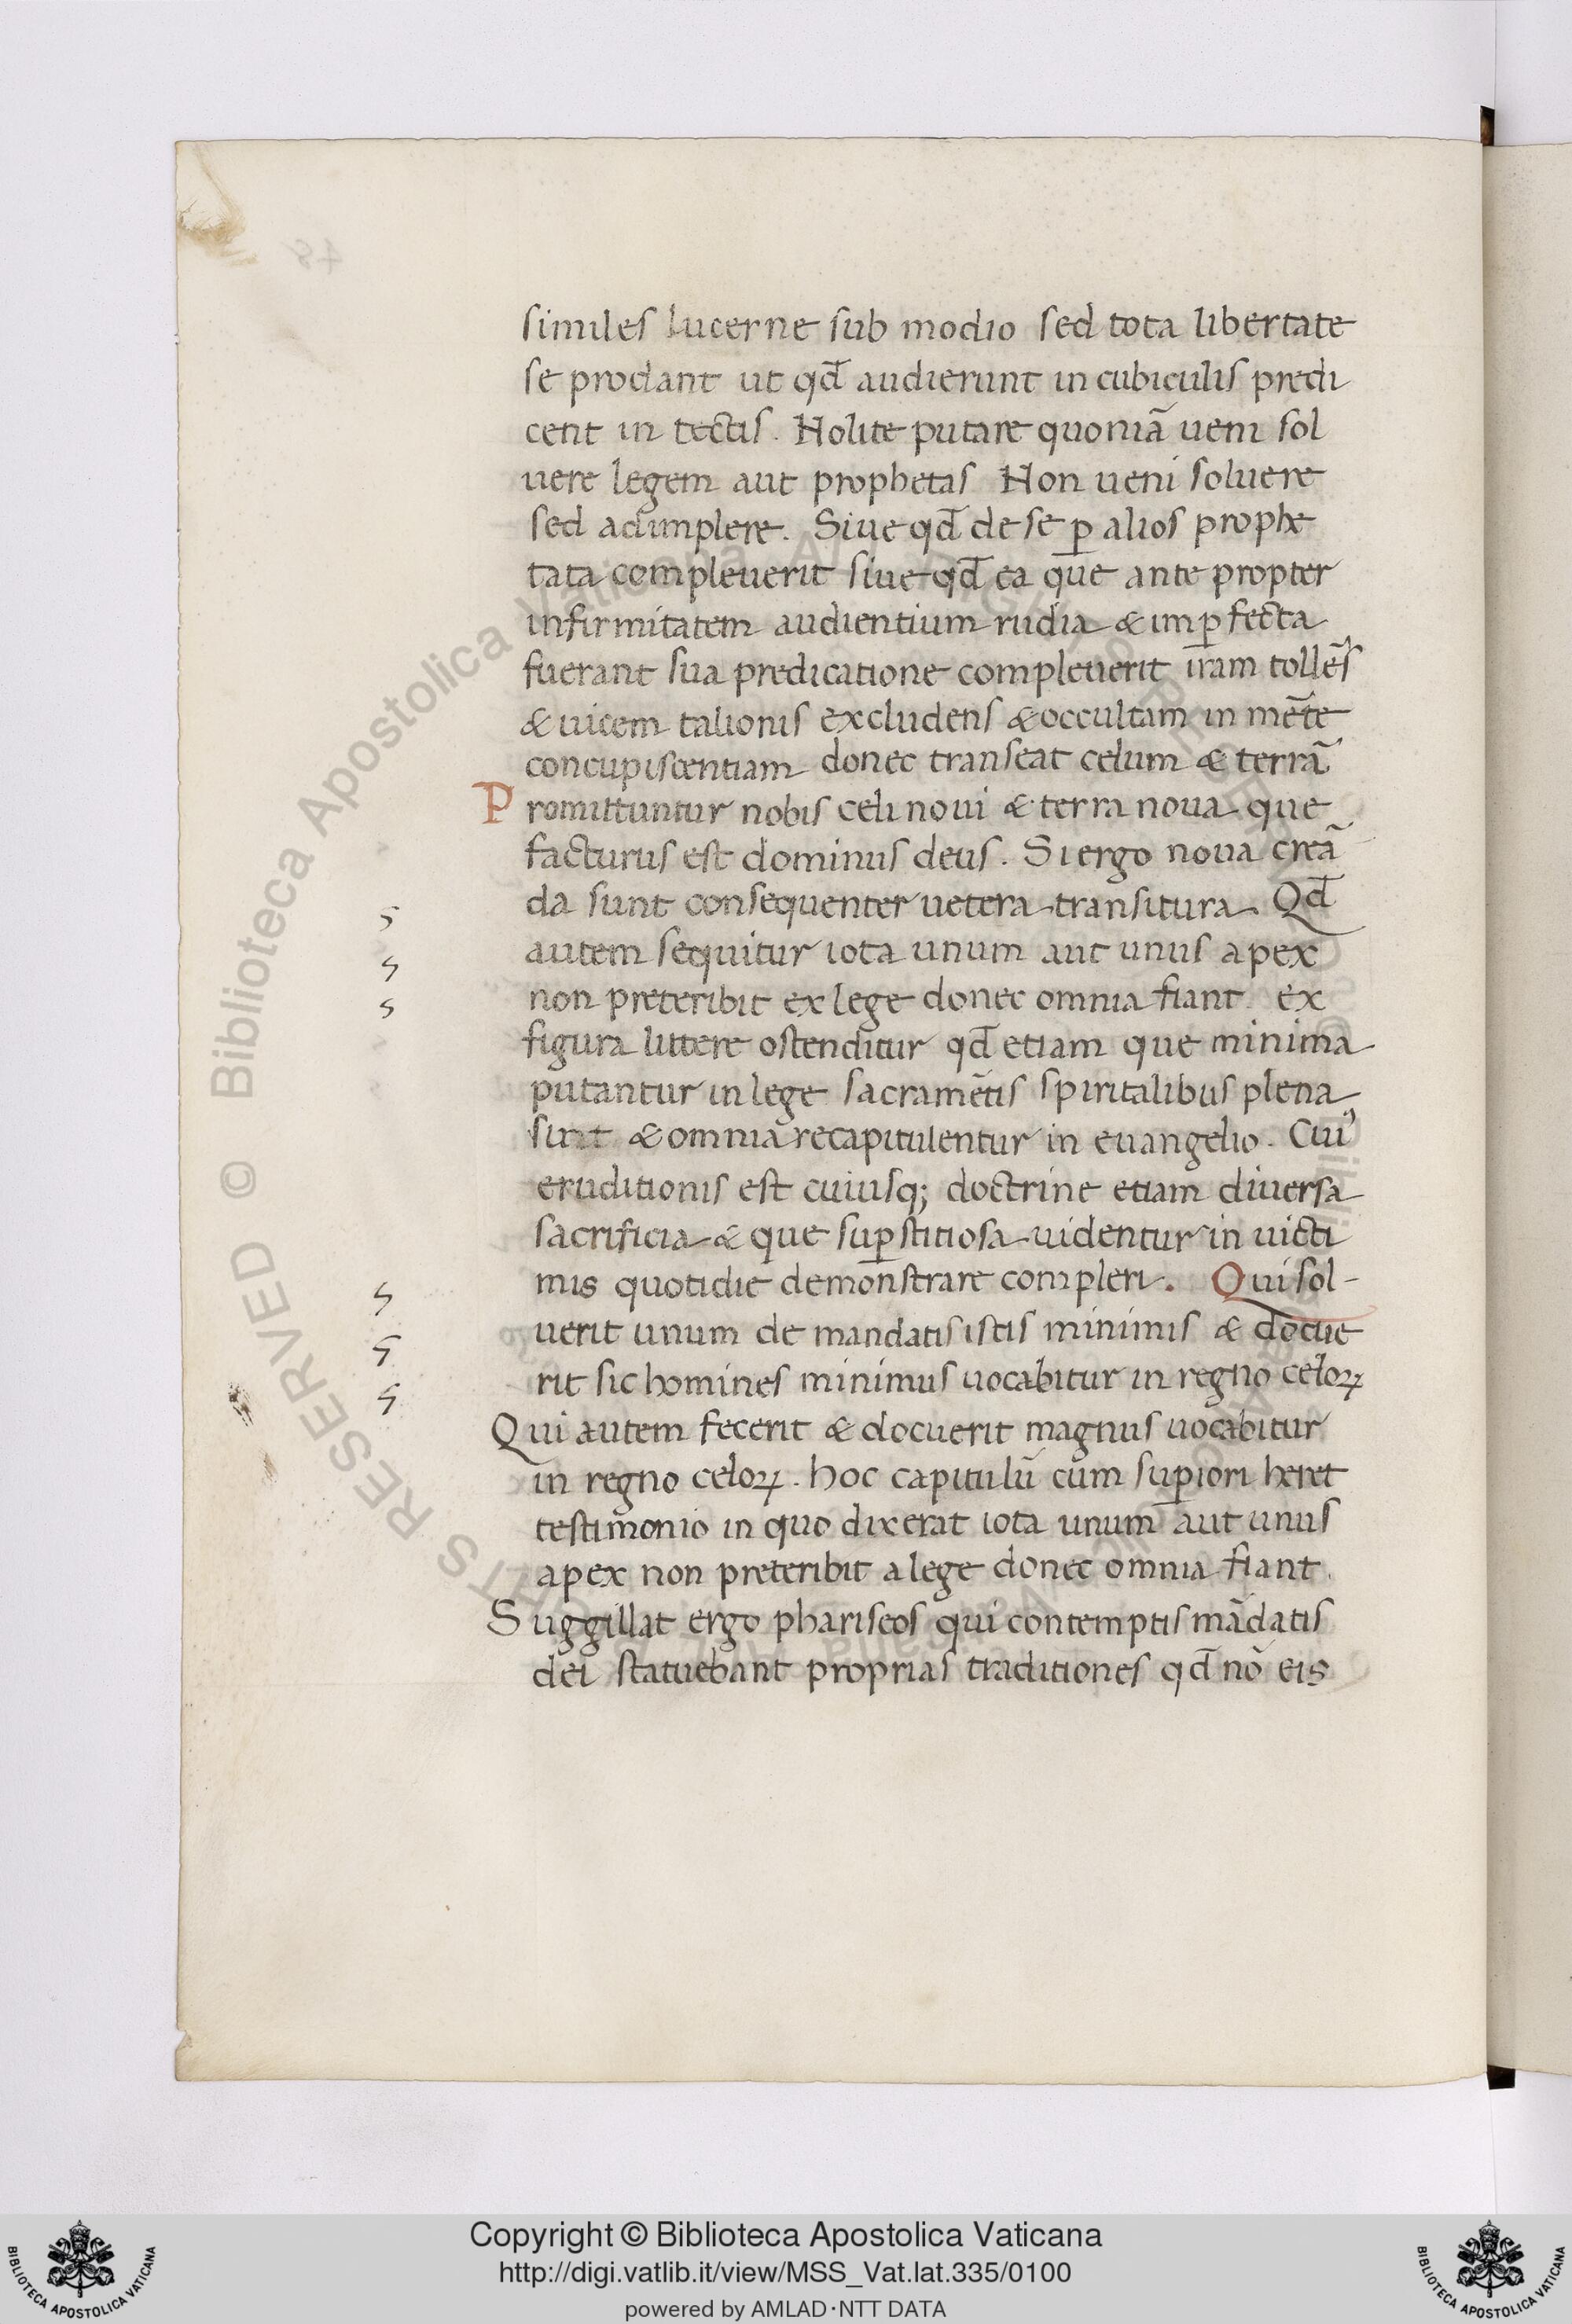 similes lucerne sub modio sed tota libertate
se prodant ut qd̄ audierunt in cubiculis predi
cent in tectis. Nolite putare quoniā ueni sol
uere legem aut prophetas Non ueni soluere
sed adimplere. Siue qd̄ de se ꝑ alios prophe
tata compleuerit siue qd̄ ea que ante propter
infirmitatem audientium rudia & imꝑfecta
fuerant sua predicatione compleuerit iram tollēs
& uicem talionis excludens & occultam in mēte
concupiscentiam donec transeat celum & terrā
Promittuntur nobis celi noui & terra noua que
facturus est dominus deus. Si ergo noua creā
da sunt consequenter uetera transitura. Qd̄
autem sequitur iota unum aut unus apex
non preteribit ex lege donec omnia fiant. ex
figura littere ostenditur qd̄ etiam que minima
putantur in lege sacramētis spiritalibus plena
sint & omnia recapitulentur in euangelio. Cuiꝰ
eruditionis est cuiusq; doctrine etiam diuersa
sacrificia & que suꝑstitiosa uidentur in uicti
mis quotidie demonstrare compleri. Qui sol-
uerit unum de mandatis istis minimis & docue
rit sic homines minimus uocabitur in regno celoꝝ
Qui autem fecerit & docuerit magnus uocabitur
in regno celoꝝ. hoc capitulū cum suꝑiori heret
testimonio in quo dixerat iota unum aut unus
apex non preteribit a lege donec omnia fiant.
Suggillat ergo phariseos qui contemptis mādatis
dei statuebant proprias traditiones qd̄ nō eis
Copyright © Biblioteca Apostolica Vaticana
http://digi.vatlib.it/view/MSS_Vat.lat.335/0100
powered by AMLAD·NTT DATA
BIBLIOTECA APOSTOLICA VATICANA
BIBLIOTECA APOSTOLICA VATICANA